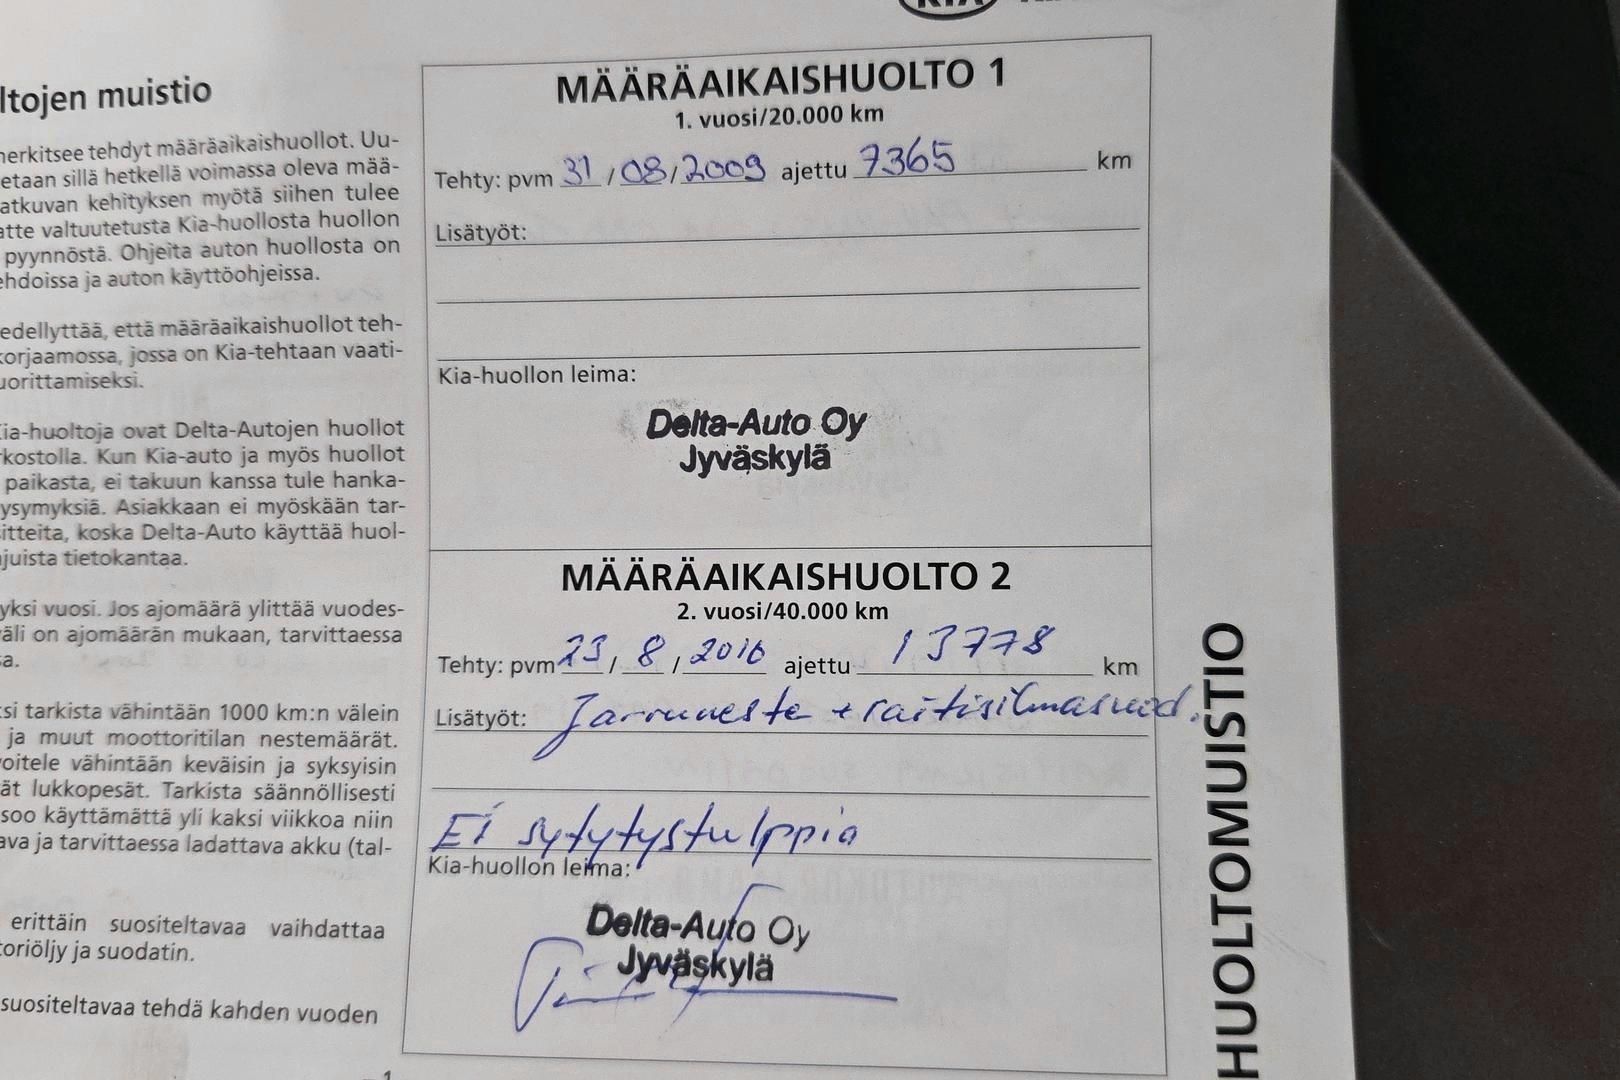 KIA
ltojen muistio
nerkitsee tehdyt määräaikaishuollot. Uu-
etaan sillä hetkellä voimassa oleva mää-
atkuvan kehityksen myötä siihen tulee
atte valtuutetusta Kia-huollosta huollon
pyynnöstä. Ohjeita auton huollosta on
ehdoissa ja auton käyttöohjeissa.
edellyttää, että määräaikaishuollot teh-
korjaamossa, jossa on Kia-tehtaan vaati-
uorittamiseksi.
Kia-huoltoja ovat Delta-Autojen huollot
rkostolla. Kun Kia-auto ja myös huollot
paikasta, ei takuun kanssa tule hanka-
ysymyksiä. Asiakkaan ei myöskään tar-
sitteita, koska Delta-Auto käyttää huol-
ajuista tietokantaa.
yksi vuosi. Jos ajomäärä ylittää vuodes-
väli on ajomäärän mukaan, tarvittaessa
sa.
ksi tarkista vähintään 1000 km:n välein
ja muut moottoritilan nestemäärät.
voitele vähintään keväisin ja syksyisin
ät lukkopesät. Tarkista säännöllisesti
soo käyttämättä yli kaksi viikkoa niin
ava ja tarvittaessa ladattava akku (tal-
erittäin suositeltavaa vaihdattaa
toriöljy ja suodatin.
suositeltavaa tehdä kahden vuoden
MÄÄRÄAIKAISHUOLTO 1
1. vuosi/20.000 km
Tehty: pvm 31/08/2009 ajettu 7365 km
Lisätyöt:
Kia-huollon leima:
Delta-Auto Oy
Jyväskylä
MÄÄRÄAIKAISHUOLTO 2
2. vuosi/40.000 km
Tehty: pvm 23/8/2010 ajettu 13778 km
Lisätyöt: Jarruneste + raitisilmasuod.
Ei sytytystulppia
Kia-huollon leima:
Delta-Auto Oy
Jyväskylä
HUOLTOMUISTIO